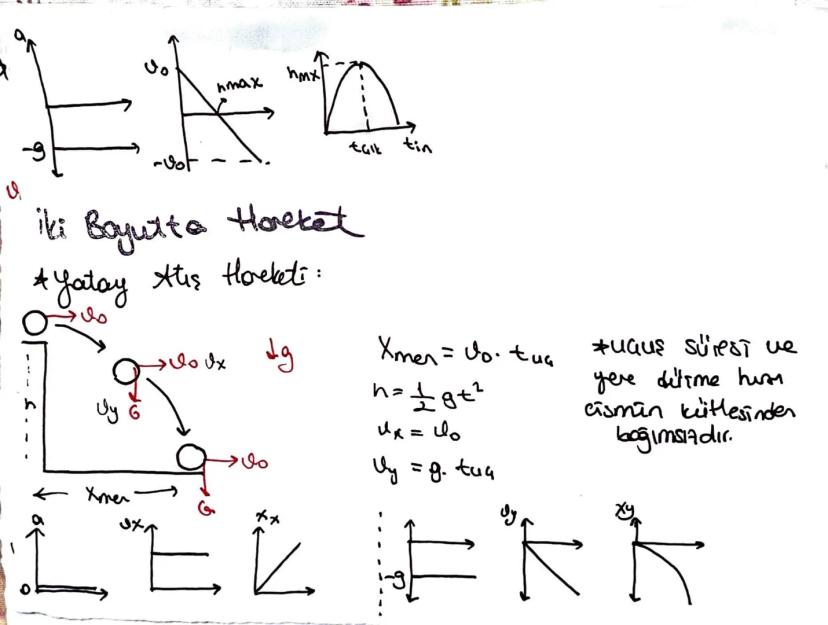 a
-g
v₀
hmax
-v₀
hmx
tçık
tin
İki Boyutta Hareket
* Yatay Atış Hareketi:
v₀
v₀ vx
↓g
vy G
h
v₀
G
Xmen
Xmen = v₀. tuç
h = 1/2 gt²
vx = v₀
vy = g. tuç
* uçuş süresi ve
yere düşme hızı
cismin kütlesinden
bağımsızdır.
a
0
vx
xx
-g
vy
xy